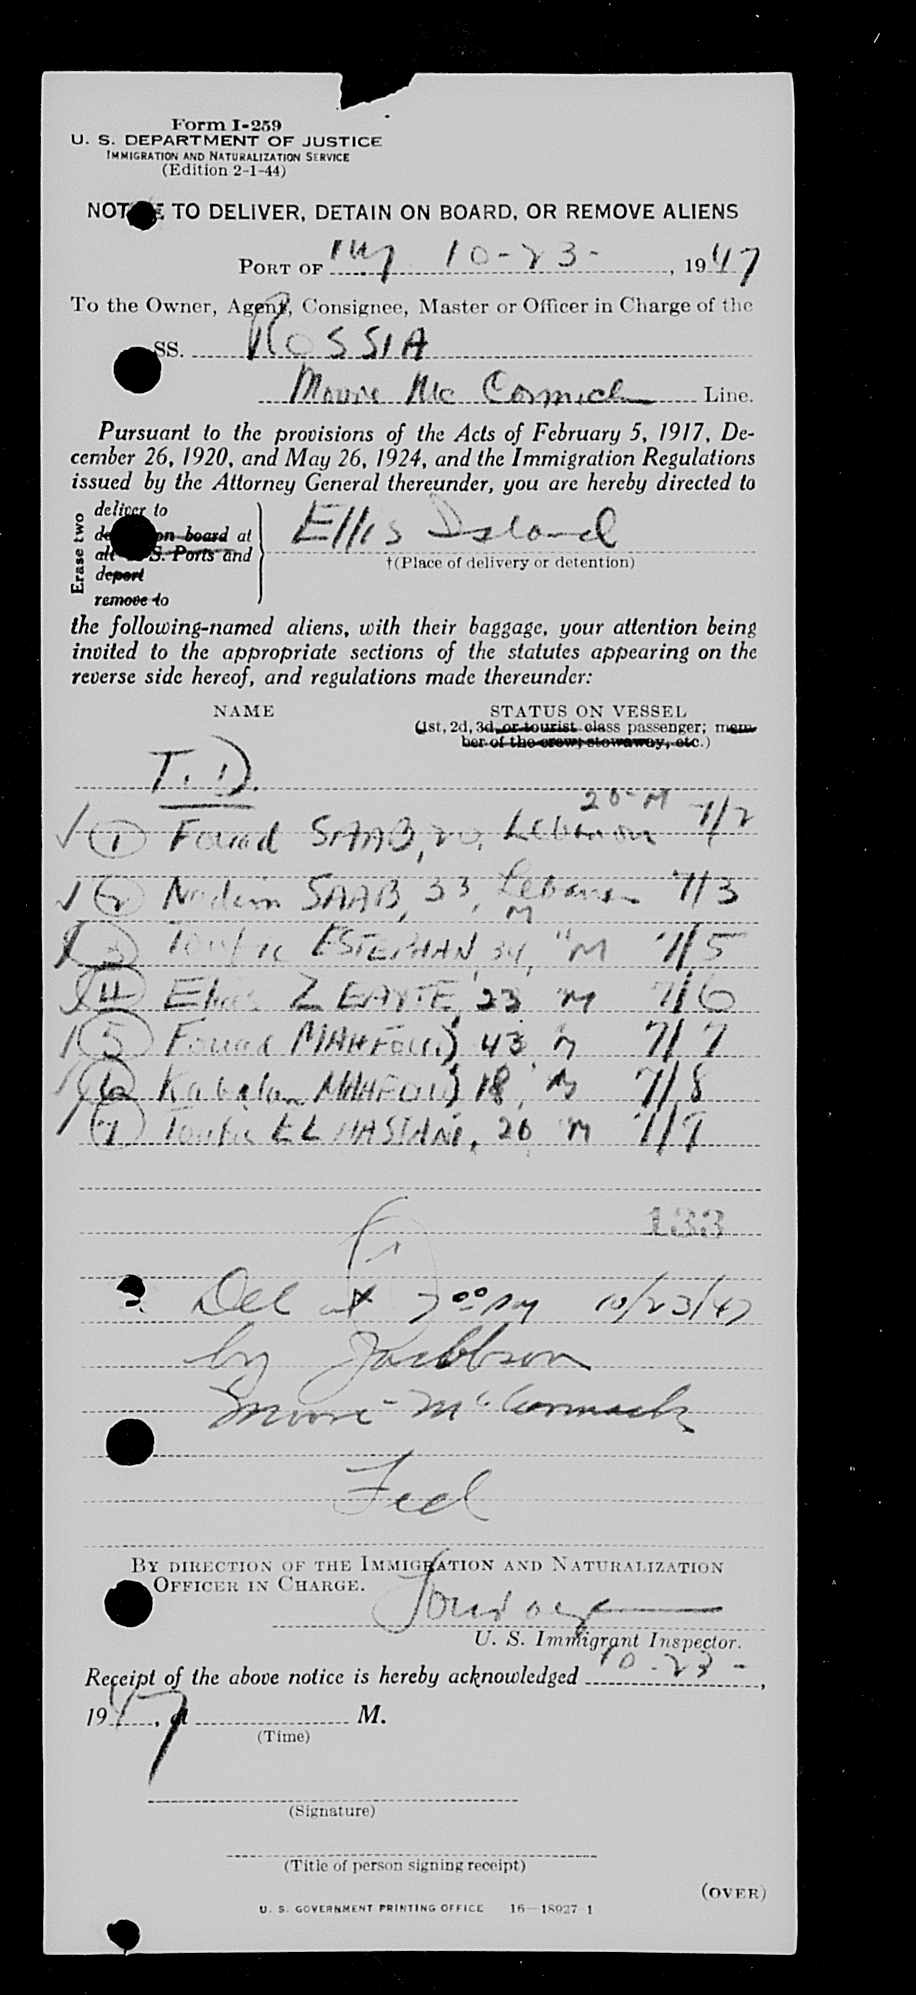 Form I-259
U. S. DEPARTMENT OF JUSTICE
IMMIGRATION AND NATURALIZATION SERVICE
(Edition 2-1-44)
NOTICE TO DELIVER, DETAIN ON BOARD, OR REMOVE ALIENS
PORT OF NY 10-23-, 1947
To the Owner, Agent, Consignee, Master or Officer in Charge of the
SS. ROSSIA
Moore Mc Cormick Line.
Pursuant to the provisions of the Acts of February 5, 1917, De-
cember 26, 1920, and May 26, 1924, and the Immigration Regulations
issued by the Attorney General thereunder, you are hereby directed to
Erase two
deliver to
on board at
all U.S. Ports and
deport
remove to
Ellis Island
†(Place of delivery or detention)
the following-named aliens, with their baggage, your attention being
invited to the appropriate sections of the statutes appearing on the
reverse side hereof, and regulations made thereunder:
NAME STATUS ON VESSEL
(1st, 2d, 3d, or tourist class passenger; mem-
ber of the crew; stowaway, etc.)
T. D.
20-M
1 Fouad SAAB, 20, Lebanon 7/2
2 Nadim SAAB, 33, Lebanon 7/3
M
3 Toufic ESTEPHAN 34, " M 7/5
4 Elias 23 " M 7/6
5 Fouad MAHFOUD, 43 " M 7/7
6 Kabalan MAHFOUD, 18, " M 7/8
7 Toufic EL HASIANI, 26 " M 7/9
133
Del at 7 00 PM 10/23/47
by Jacobson
Moore-McCormack
Feed
BY DIRECTION OF THE IMMIGRATION AND NATURALIZATION
OFFICER IN CHARGE.
U. S. Immigrant Inspector.
Receipt of the above notice is hereby acknowledged 10-23-,
1947, at M.
(Time)
(Signature)
(Title of person signing receipt)
(OVER)
U. S. GOVERNMENT PRINTING OFFICE 16—18927-1